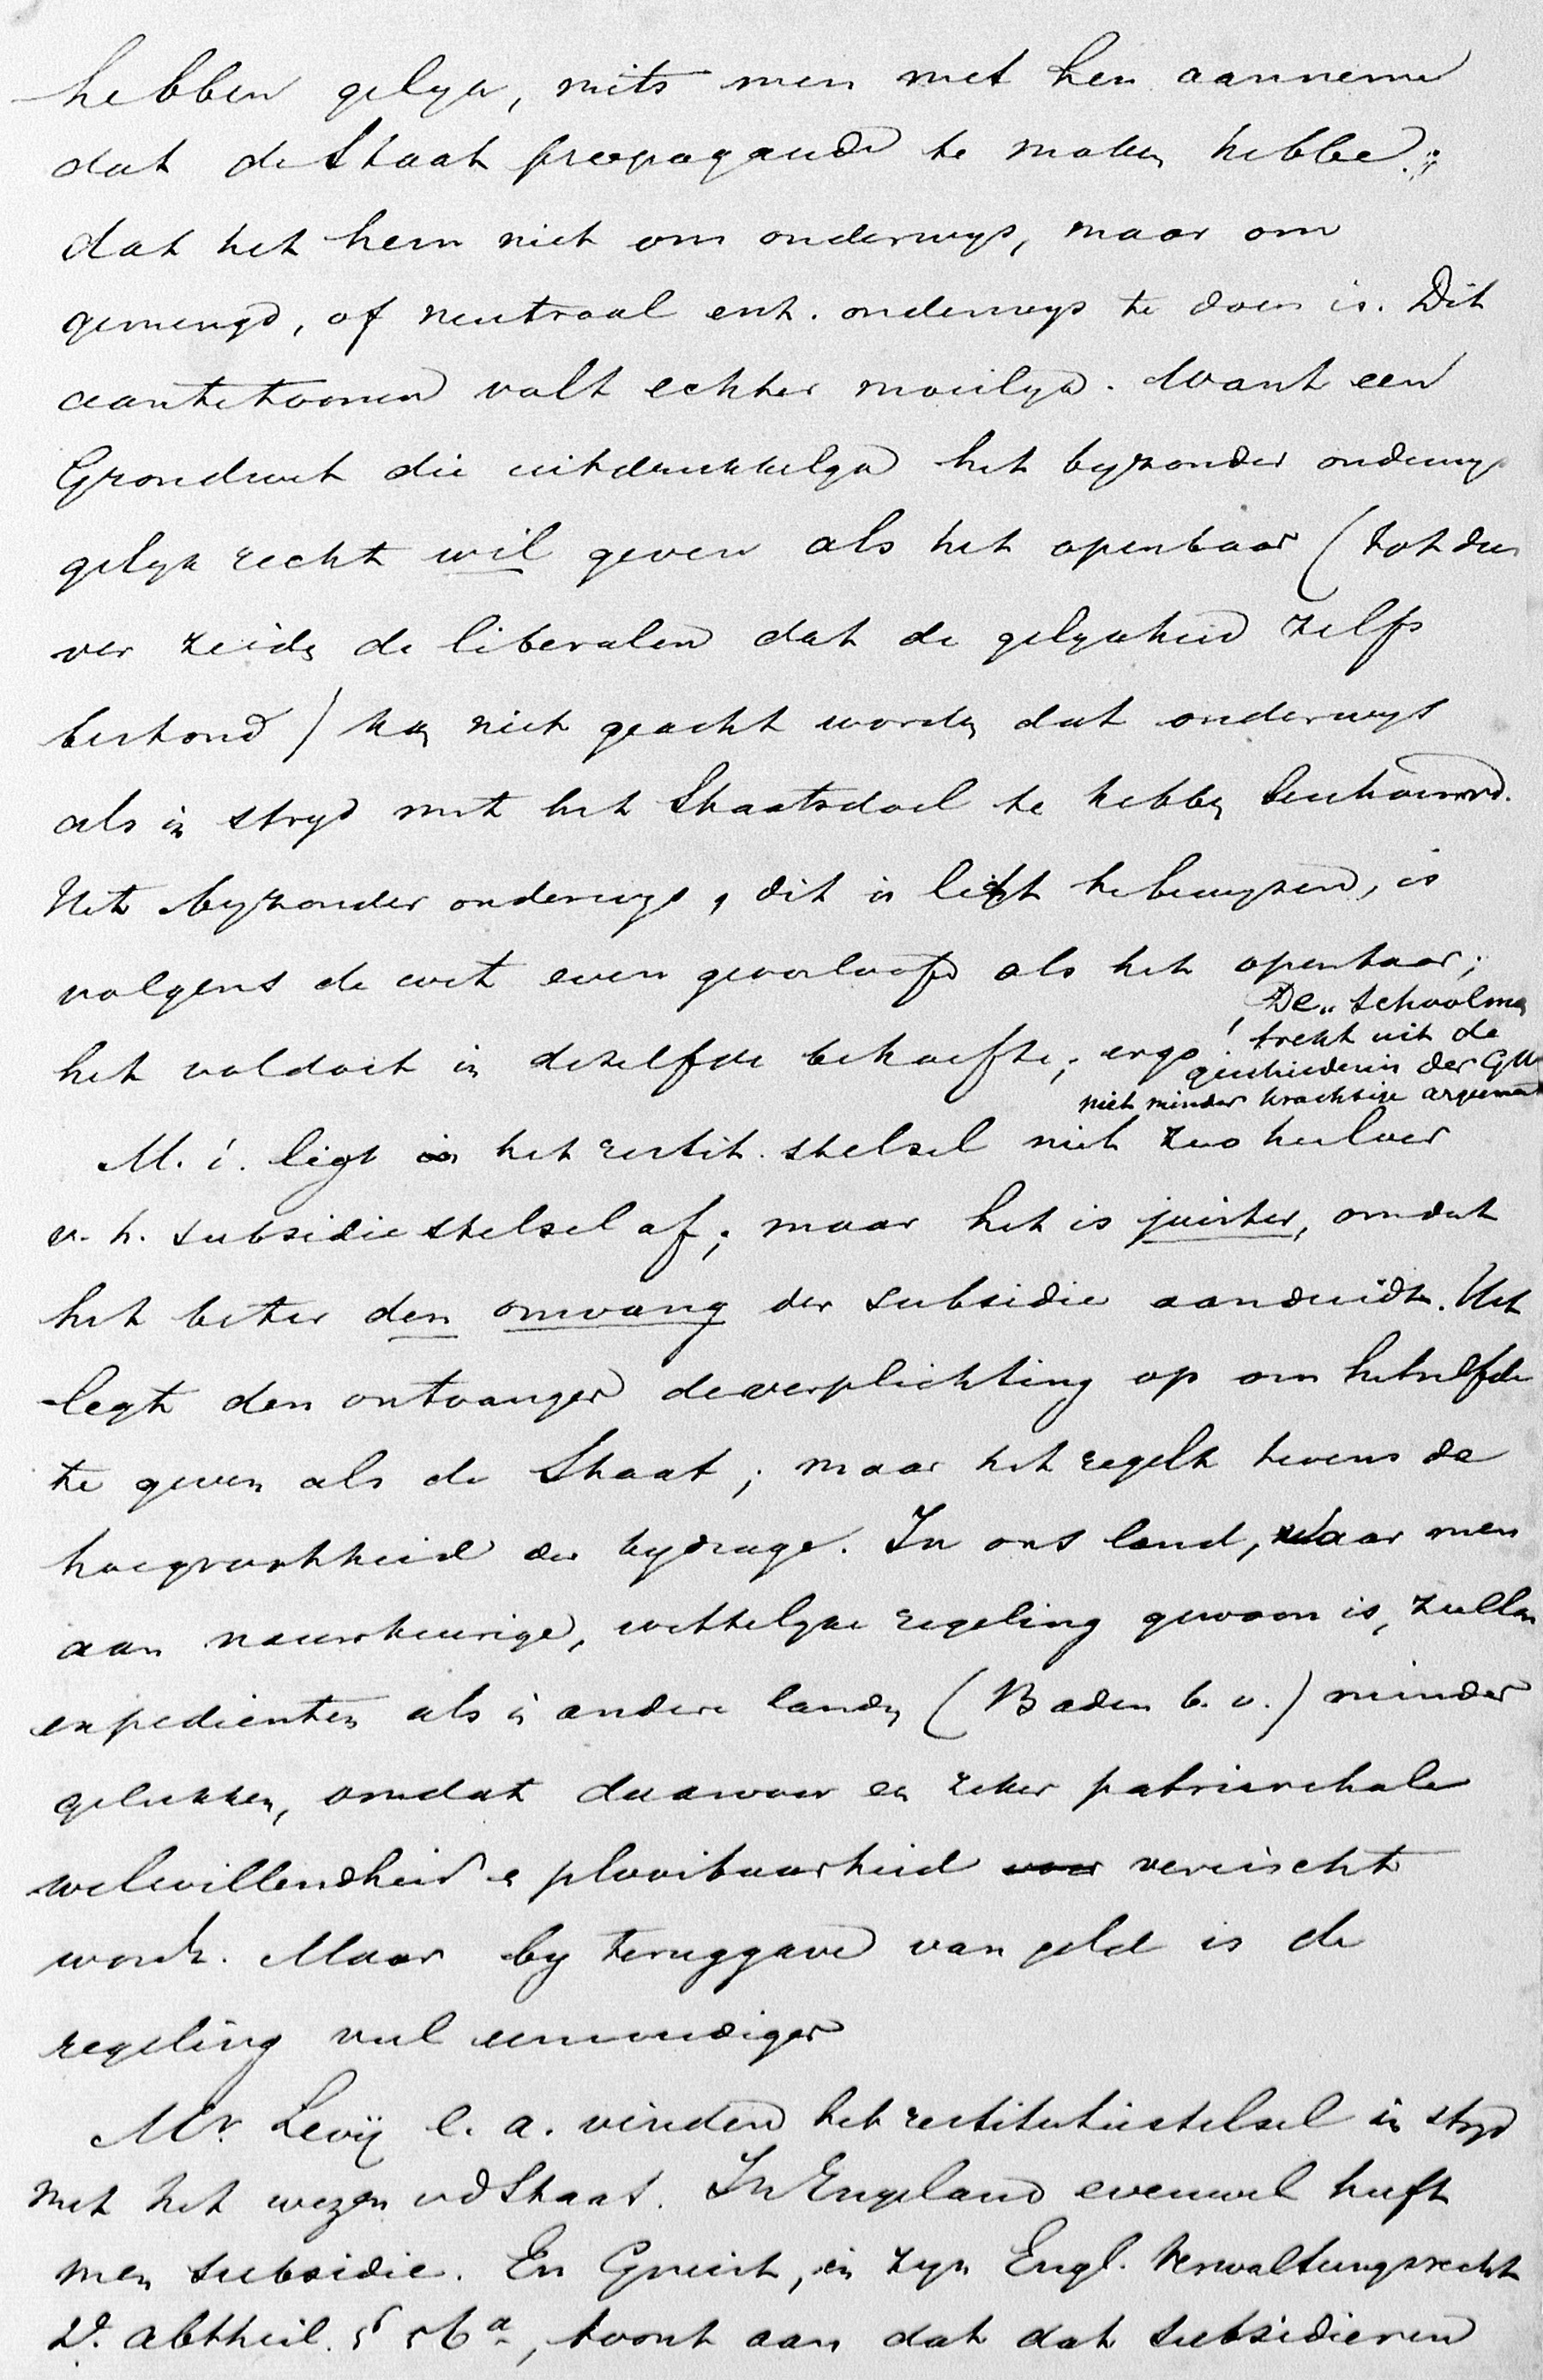 hebben gelyk, mits men met hen aanneme
dat de Staat propaganda te maken hebbe;
dat het hem niet om onderwys, maar om
gemengd, of neutraal enz. onderwys te doen is. Dit
aantetoonen valt echter moeilyk. Want een
Grondwet die uitdrukkelyk het byzonder onderwys
gelyk recht wil geven als het openbaar (tot dus
ver zeiden de liberalen dat de gelykheid zelfs
bestond) kan niet geacht worden dat onderwys
als in stryd met het Staatsdoel te hebben beschouwd.
Het byzonder onderwys, dit is licht te bewyzen, is
volgens de wet even geoorloofd als het openbaar;
het voldoet in dezelfde behoefte; ergo!
De schoolman
trekt uit de
geschiedenis der GW
niet minder krachtige argument
M. i. ligt het restit. stelsel niet zoo heel ver
v. h. subsidiestelsel af; maar het is juister, omdat
het beter den omvang der subsidie aanduidt. Het
legt den ontvanger de verplichting op om hetzelfde
te geven als de Staat; maar het regelt tevens de
hoegrootheid der bydrage. In ons land, waar men
aan nauwkeurige, wettelyke regeling gewoon is, zullen
expedienten als in andere landen (Baden b. v.) minder
gelukken, omdat daarvoor een zeker patriarchale
welwillendheid en plooibaarheid vereischt
wordt. Maar by teruggave van geld is de
regeling veel eenvoudiger
Mr. Levÿ e. a. vinden het restitutiestelsel in stryd
met het wezen v d Staat. In Engeland evenwel heeft
men subsidie. En Gneist, in zyn Engl. Verwaltungsrecht
2e. abtheil. § 56a, toont aan dat dat subsidieren